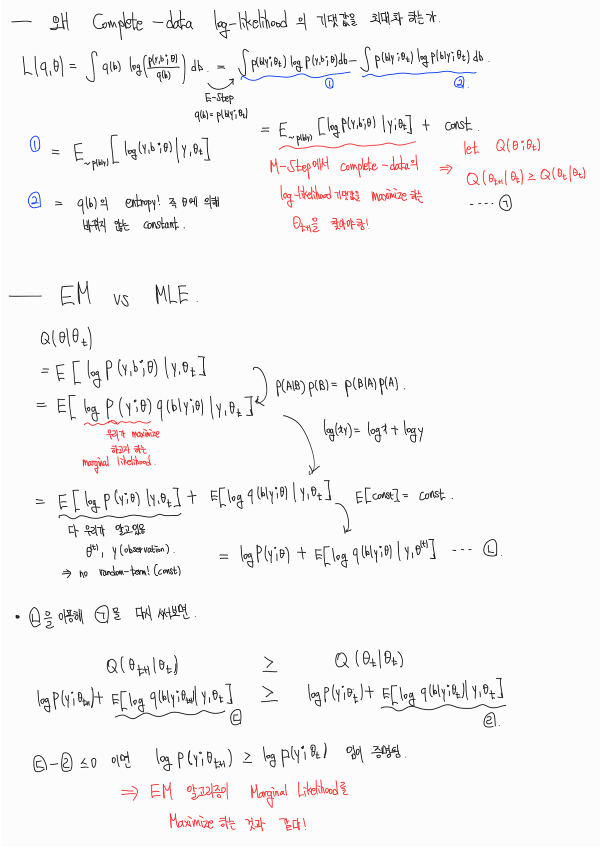 — 왜 Complete-data log-likelihood 의 기댓값을 최대화 하는가.
L(q,θ) = ∫ q(b) log(p(y,b;θ)/q(b)) db. = ∫ p(b|y;θt) log p(y,b;θ) db − ∫ p(b|y;θt) log p(b|y;θt) db.
E-Step
q(b) = p(b|y;θt)
① ②
① = E~p(b|y) [ log(y,b;θ) | y,θt ]
= E~p(b|y) [ log p(y,b;θ) | y;θt ] + const.
② = q(b)의 entropy! 즉 θ에 의해
바뀌지 않는 constant.
M-Step에서 complete-data의
log-likelihood 기댓값을 maximize 하는
θt+1을 찾아야함!
⇒ let Q(θ;θt)
Q(θt+1|θt) ≥ Q(θt|θt)
---- ㉠
— EM vs MLE.
Q(θ|θt)
= E [ log P(y,b;θ) | y,θt ]
P(A|B) p(B) = p(B|A) p(A).
= E[ log P(y;θ) q(b|y;θ) | y,θt ]
우리가 maximize
하고자 하는
marginal likelihood.
log(xy) = logx + logy
= E[ log P(y;θ) | y,θt ] + E[ log q(b|y;θ) | y,θt ]
E[const] = const.
다 우리가 알고있음
θ(t), y (observation).
⇒ no random-term! (const)
= log P(y;θ) + E[ log q(b|y;θ) | y,θ(t) ] --- ㉡.
• ㉡을 이용해 ㉠을 다시 써보면.
Q(θt+1|θt) ≥ Q(θt|θt)
log P(y;θt+1) + E[ log q(b|y;θt+1) | y,θt ] ≥ log P(y;θt) + E[ log q(b|y;θt) | y,θt ]
㉢ ㉣.
㉢-㉣ ≤0 이면 log P(y;θt+1) ≥ log p(y;θt) 임이 증명됨.
⇒ EM 알고리즘이 Marginal Likelihood를
Maximize 하는 것과 같다!